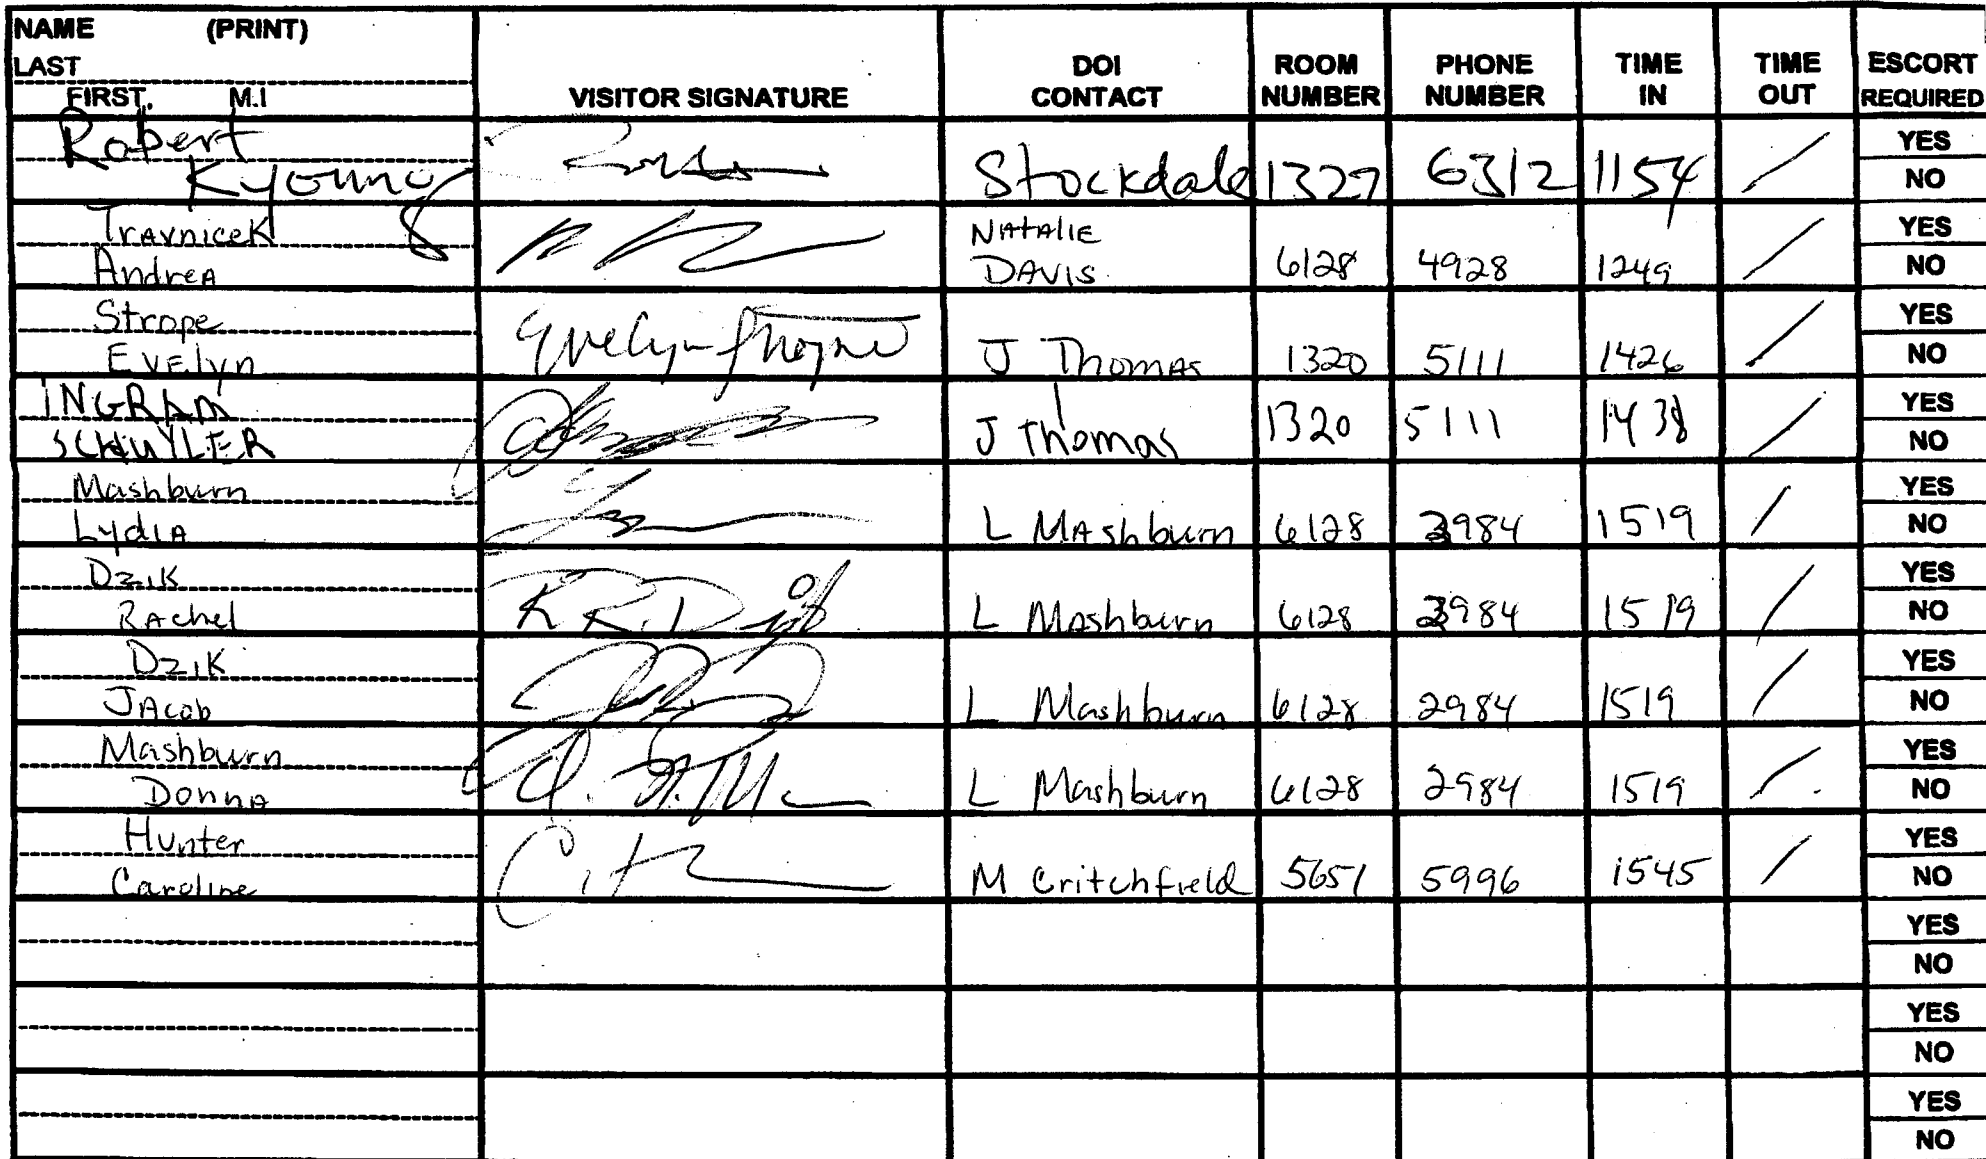 NAME (PRINT)
LAST
FIRST, M.I
VISITOR SIGNATURE
DOI CONTACT
ROOM NUMBER
PHONE NUMBER
TIME IN
TIME OUT
ESCORT REQUIRED
Robert
K Young
Stockdale 1327 6312 1154 / YES
NO
Travnicek
Andrea
NATALIE
DAVIS 6128 4928 1249 / YES
NO
Strope
Evelyn
Evelyn
J Thomas 1320 5111 1426 / YES
NO
INGRAM
SCHUYLER
J Thomas 1320 5111 1438 / YES
NO
Mashburn
Lydia
L Mashburn 6128 2984 1519 / YES
NO
Dzik
Rachel
L Mashburn 6128 2984 1519 / YES
NO
Dzik
Jacob
L Mashburn 6128 2984 1519 / YES
NO
Mashburn
Donna
L Mashburn 6128 2984 1519 / YES
NO
Hunter
Caroline
M Critchfield 5651 5996 1545 / YES
NO
YES
NO
YES
NO
YES
NO